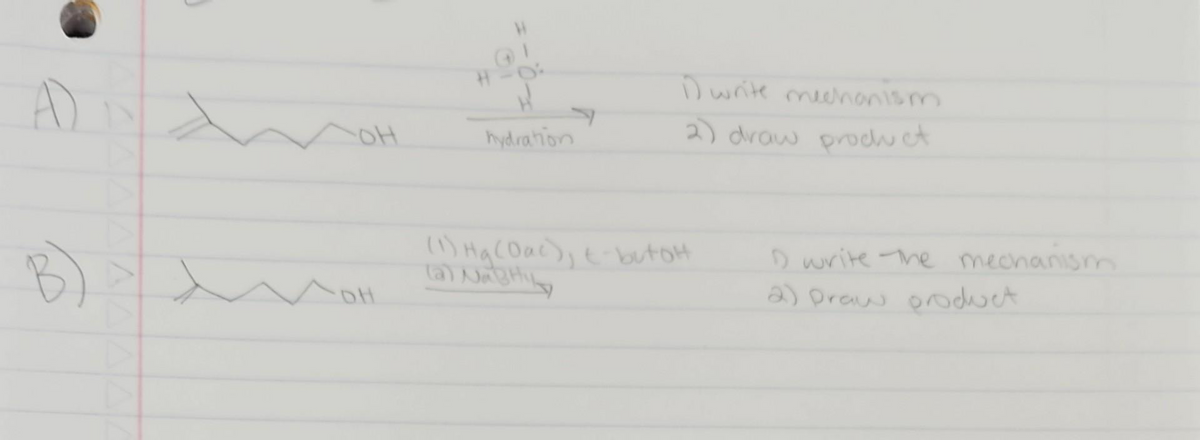 A)
OH
H
H - O:
H
hydration
1) write mechanism
2) draw product
B)
OH
(1) Hg(Oac), t-butOH
(2) NaBH4
1) write the mechanism
2) Draw product